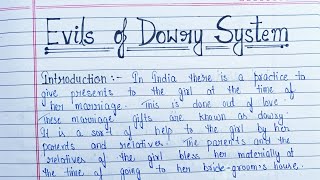 Evils of Dowry System
Introduction :- In India there is a practice to
give presents to the girl at the time of
her marriage. This is done out of love.
These marriage gifts are known as dowry
It is a sort of help to the girl by her
parents and relatives. The parents and the
relatives of the girl bless her materially at
the time of going to her bride-groom's house.